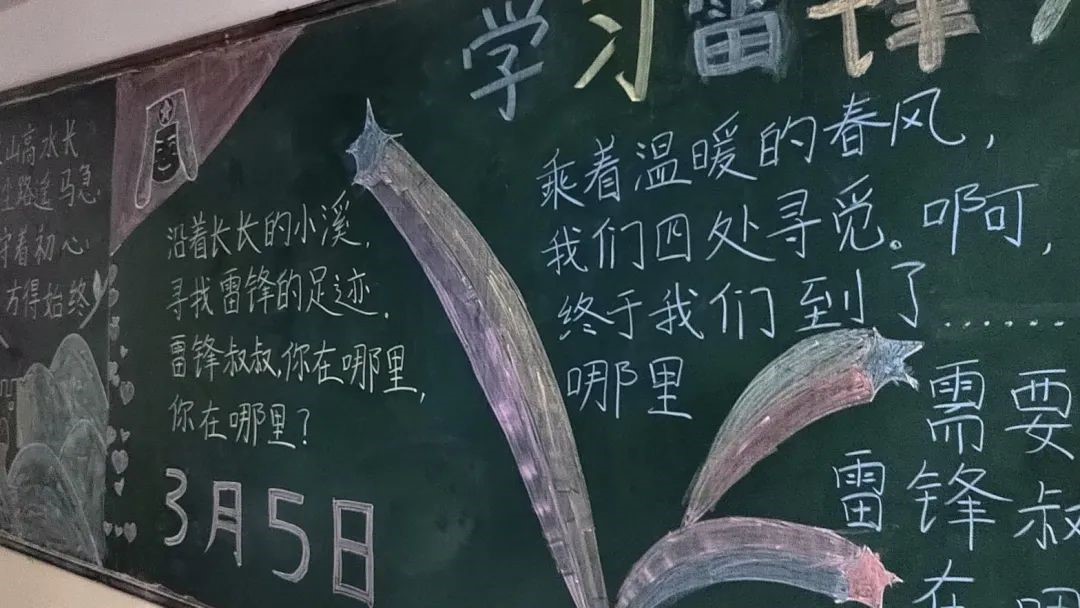 学习雷锋
山高水长
路遥马急
守着初心
方得始终
沿着长长的小溪,
寻找雷锋的足迹.
雷锋叔叔,你在哪里,
你在哪里?
3月5日
乘着温暖的春风,
我们四处寻觅。啊可,
终于我们到了……
哪里
需要
雷锋叔
在哪